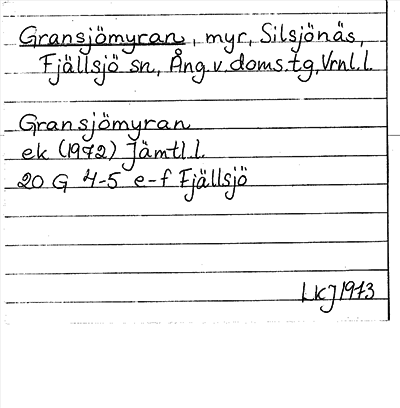 Gransjömyran, myr, Silsjönäs,
Fjällsjö sn, Ång. v. doms. tg, Vrnl. l.
Gransjömyran
ek (1972) Jämtl. l.
20 G 4-5 e-f Fjällsjö
LKJ 1973